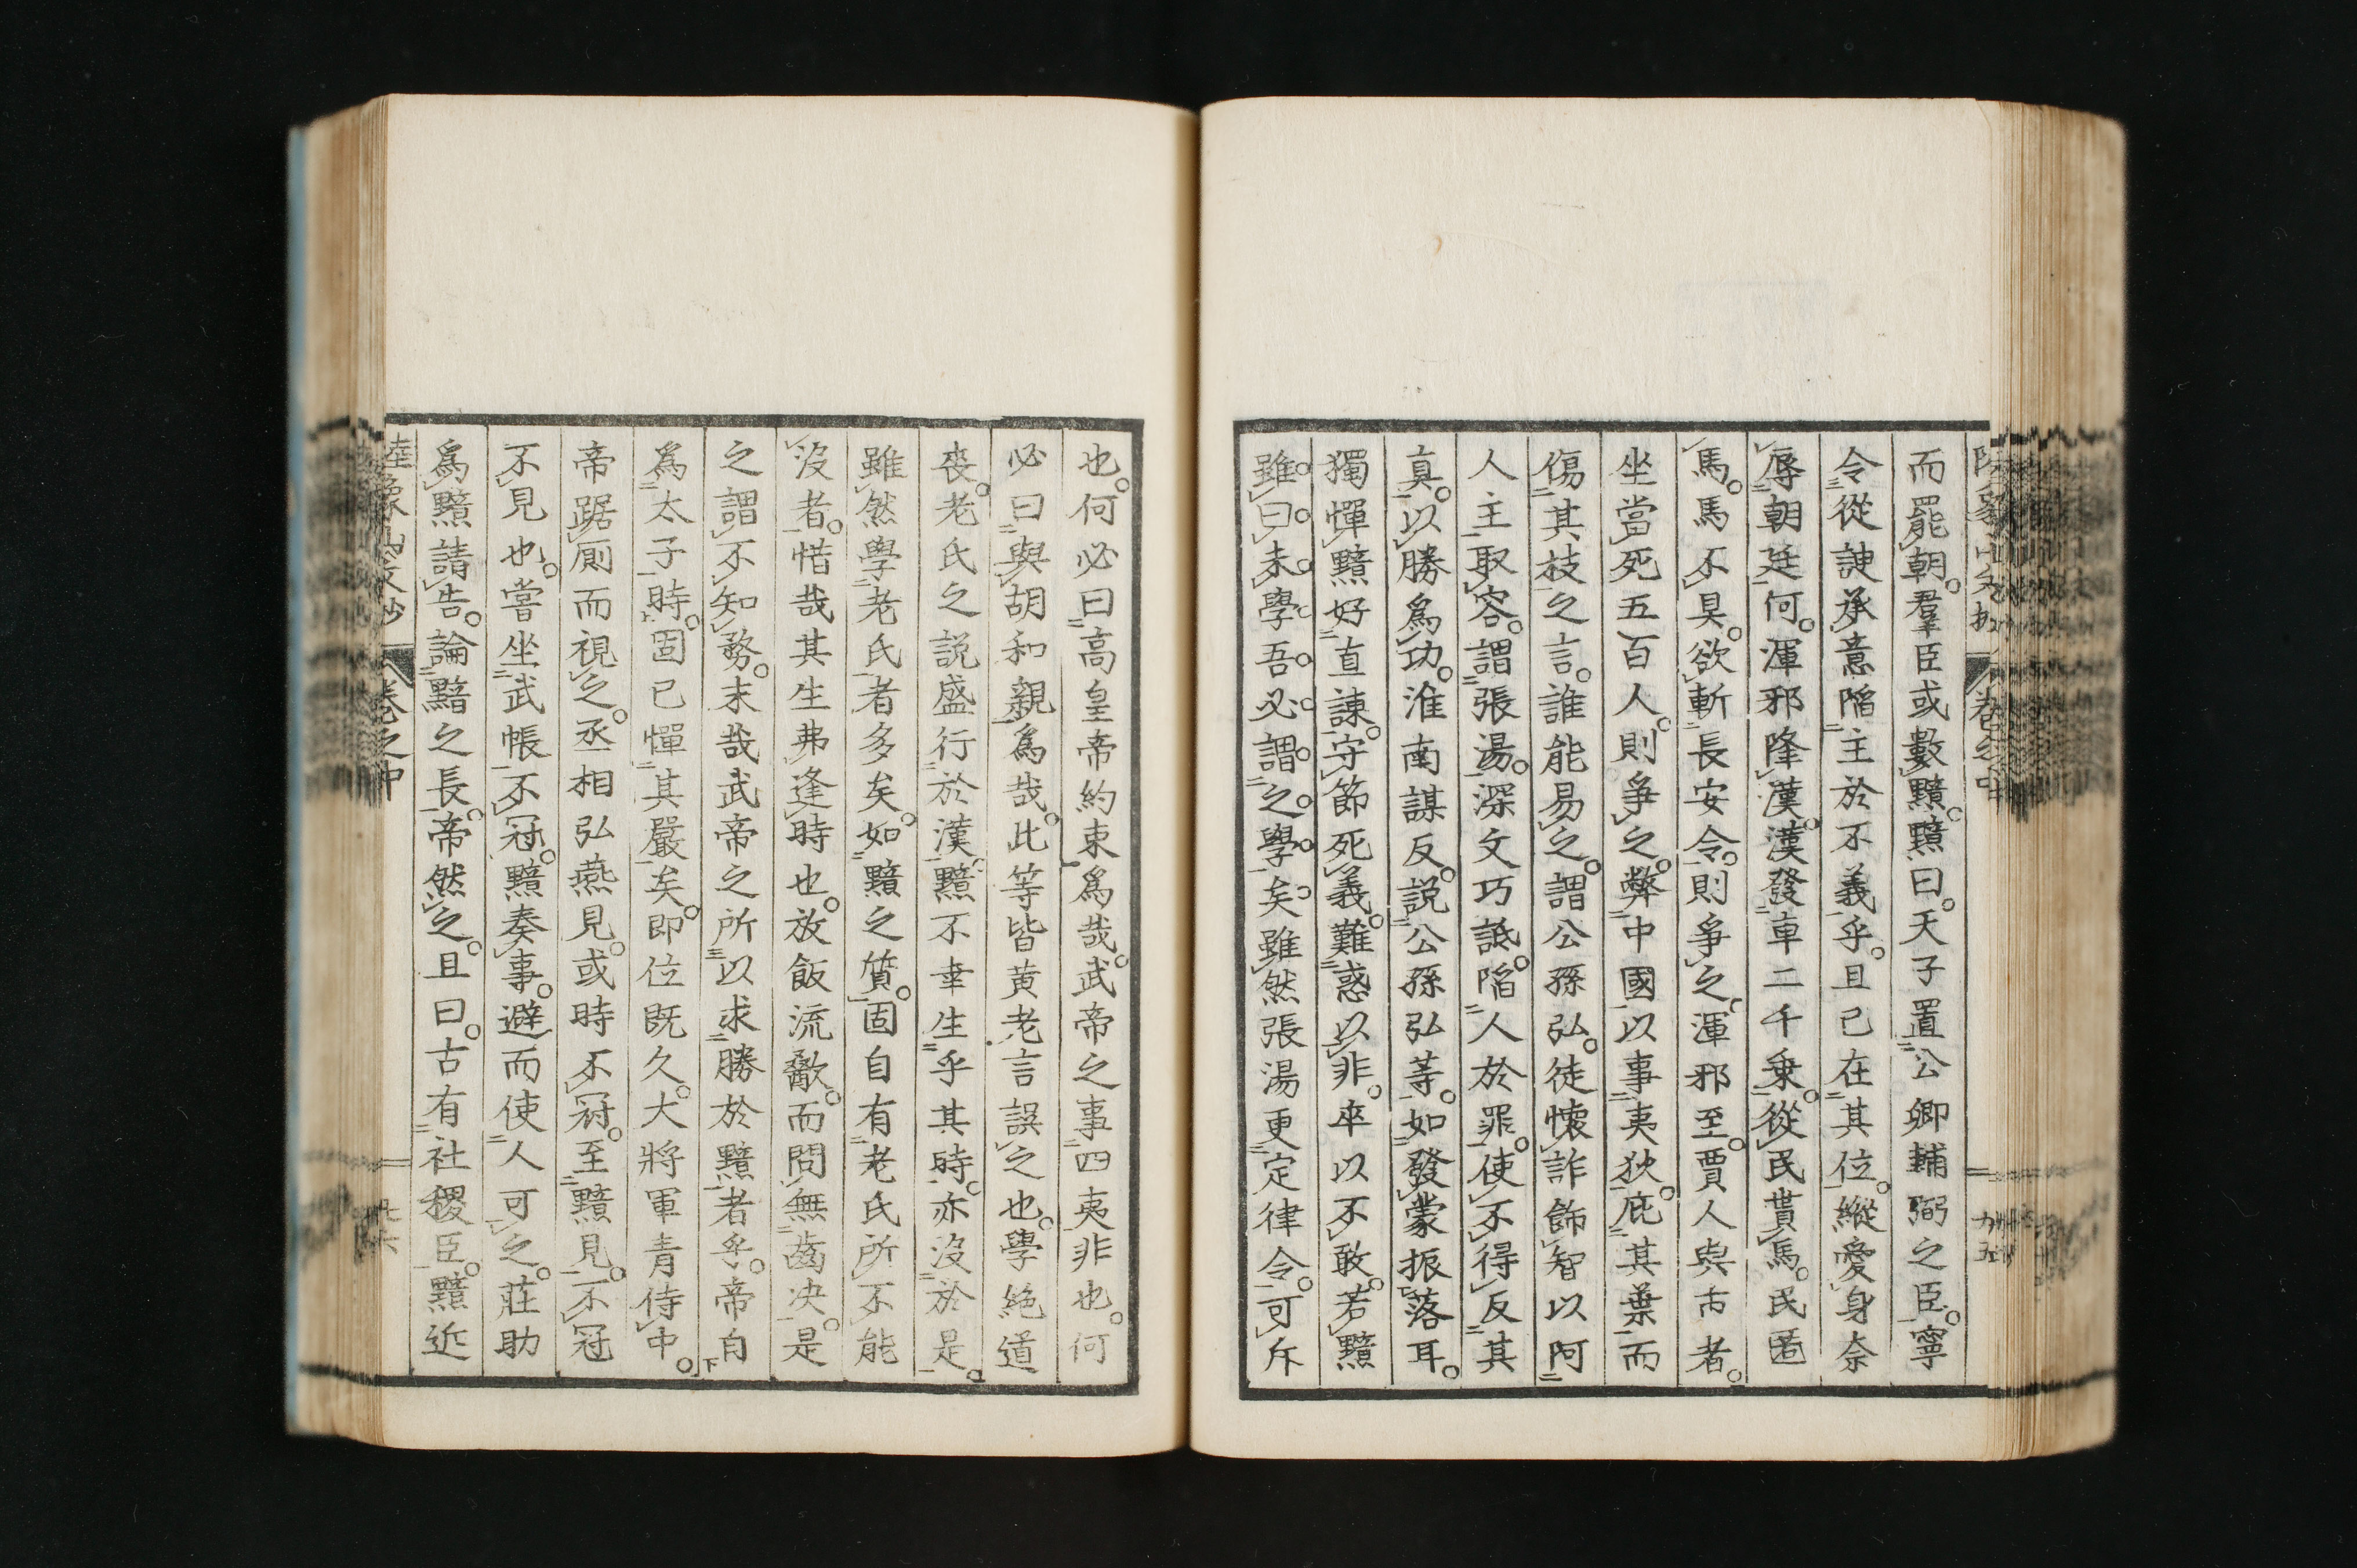 而罷朝。羣臣或數黯。黯曰。天子置公卿輔弼之臣。寧
令從諛承意陷主於不義乎。且已在其位。縱愛身奈
辱朝廷何。渾邪降漢。漢發車二千乗。從民貰馬。民匿
馬。馬不具。欲斬長安令。則爭之。渾邪至。賈人與市者。
坐當死五百人。則爭之。弊中國以事夷狄。庇其葉而
傷其枝之言。誰能易之。謂公孫弘。徒懷詐飾智以阿
人主取容。謂張湯。深文巧詆。陷人於罪。使不得反其
真。以勝為功。淮南謀反。説公孫弘等。如發蒙振落耳。
獨憚黯好直諫。守節死義。難惑以非。卒以不敢。若黯
雖曰未學吾必謂之學矣。雖然張湯更定律令。可斥
也。何必曰高皇帝約束為哉。武帝之事四夷非也。何
必曰與胡和親為哉。此等皆黄老言誤之也。學絶道
喪。老氏之説盛行於漢。黯不幸生乎其時。亦沒於是。
雖然學老氏者多矣。如黯之質。固自有老氏所不能
沒者。惜哉其生弗逢時也。放飯流歠。而問無齒决。是
之謂不知務。末哉武帝之所以求勝於黯者乎。帝自
為太子時。固已憚其嚴矣。即位既久。大將軍青侍中。
帝踞厠而視之。丞相弘燕見。或時不冠。至黯見。不冠
不見也。嘗坐武帳。不冠。黯奏事。避而使人可之。莊助
為黯請告。論黯之長。帝然之。且曰。古有社稷臣。黯近
陸象山文抄 卷之中